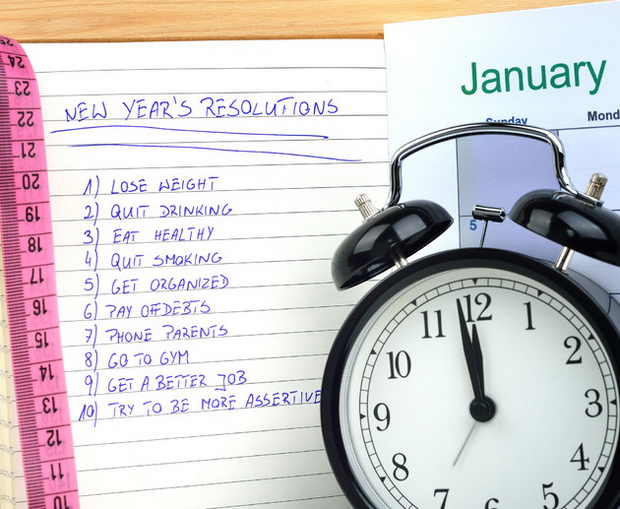 NEW YEAR'S RESOLUTIONS
1) LOSE WEIGHT
2) QUIT DRINKING
3) EAT HEALTHY
4) QUIT SMOKING
5) GET ORGANIZED
6) PAY OFF DEBTS
7) PHONE PARENTS
8) GO TO GYM
9) GET A BETTER JOB
10) TRY TO BE MORE ASSERTIVE
January
Sunday
Mond
5
12
1
2
3
4
5
6
7
8
9
10
11
24
23
22
21
20
19
18
17
16
15
14
13
12
11
10